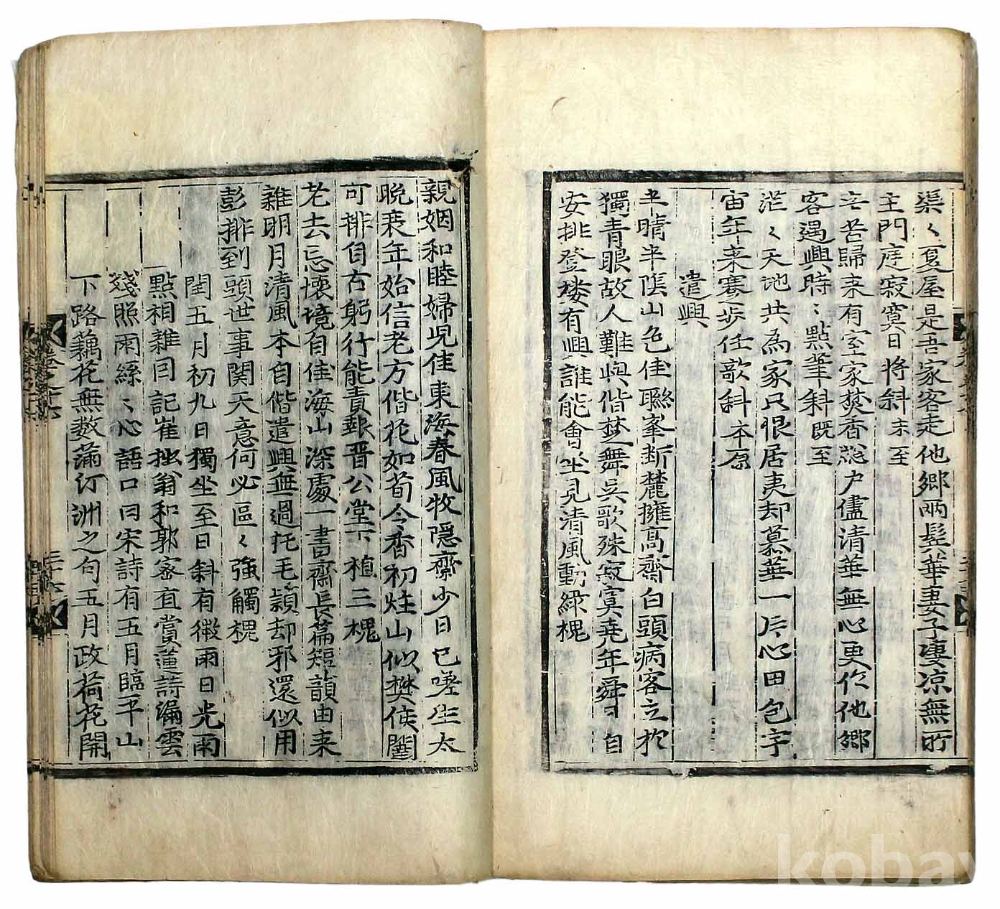 渠〻夏屋是吾家客走他鄉兩鬢華妻子凄凉無所
主門庭寂寞日將斜未至
辛苦歸来有室家焚香閉户儘清華無心更作他鄉
客遇興時〻點筆斜既至
茫〻天地共為家只恨居夷却慕華一片心田包宇
宙年来蹇步任歌斜本原
遣興
半晴半陰山色佳聯峯断麓擁高齋白頭病客立於
獨青眼故人難與偕楚舞吳歌殊寂寞堯年舜日自
安排登楼有興誰能會坐見清風動綠槐
親姻和睦婦児佳東海春風牧隱齋少日已嗟生太
晩衰年始信老方偕花如荀令香初炷山似樊侯闥
可排自古躬行能責報晋公堂下植三槐
老去忘懷境自佳海山深處一書齋長篇短韻由来
雜明月清風本自偕遣興無過托毛穎却邪還似用
彭排到頭世事関天意何必區〻強觸槐
閏五月初九日獨坐至日斜有微雨日光雨
點相雜因記崔拙翁和郭密直賞蓮詩漏雲
殘照雨絲〻心語口曰宋詩有五月臨平山
下路藕花無數滿汀洲之句五月政荷花開
kobay